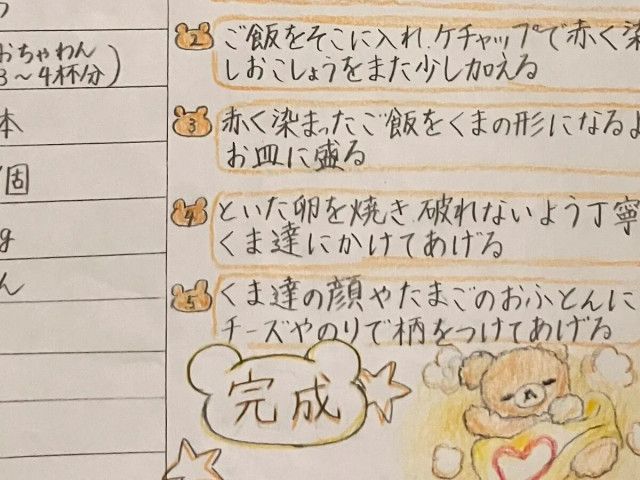 おちゃわん
3～4杯分)
本
個
g
ん
2 ご飯をそこに入れ、ケチャップで赤く染
しおこしょうをまた少し加える
3 赤く染まったご飯をくまの形になるよ
お皿に盛る
4 といた卵を焼き、破れないよう丁寧
くま達にかけてあげる
5 くま達の顔やたまごのおふとんに
チーズやのりで柄をつけてあげる
完成